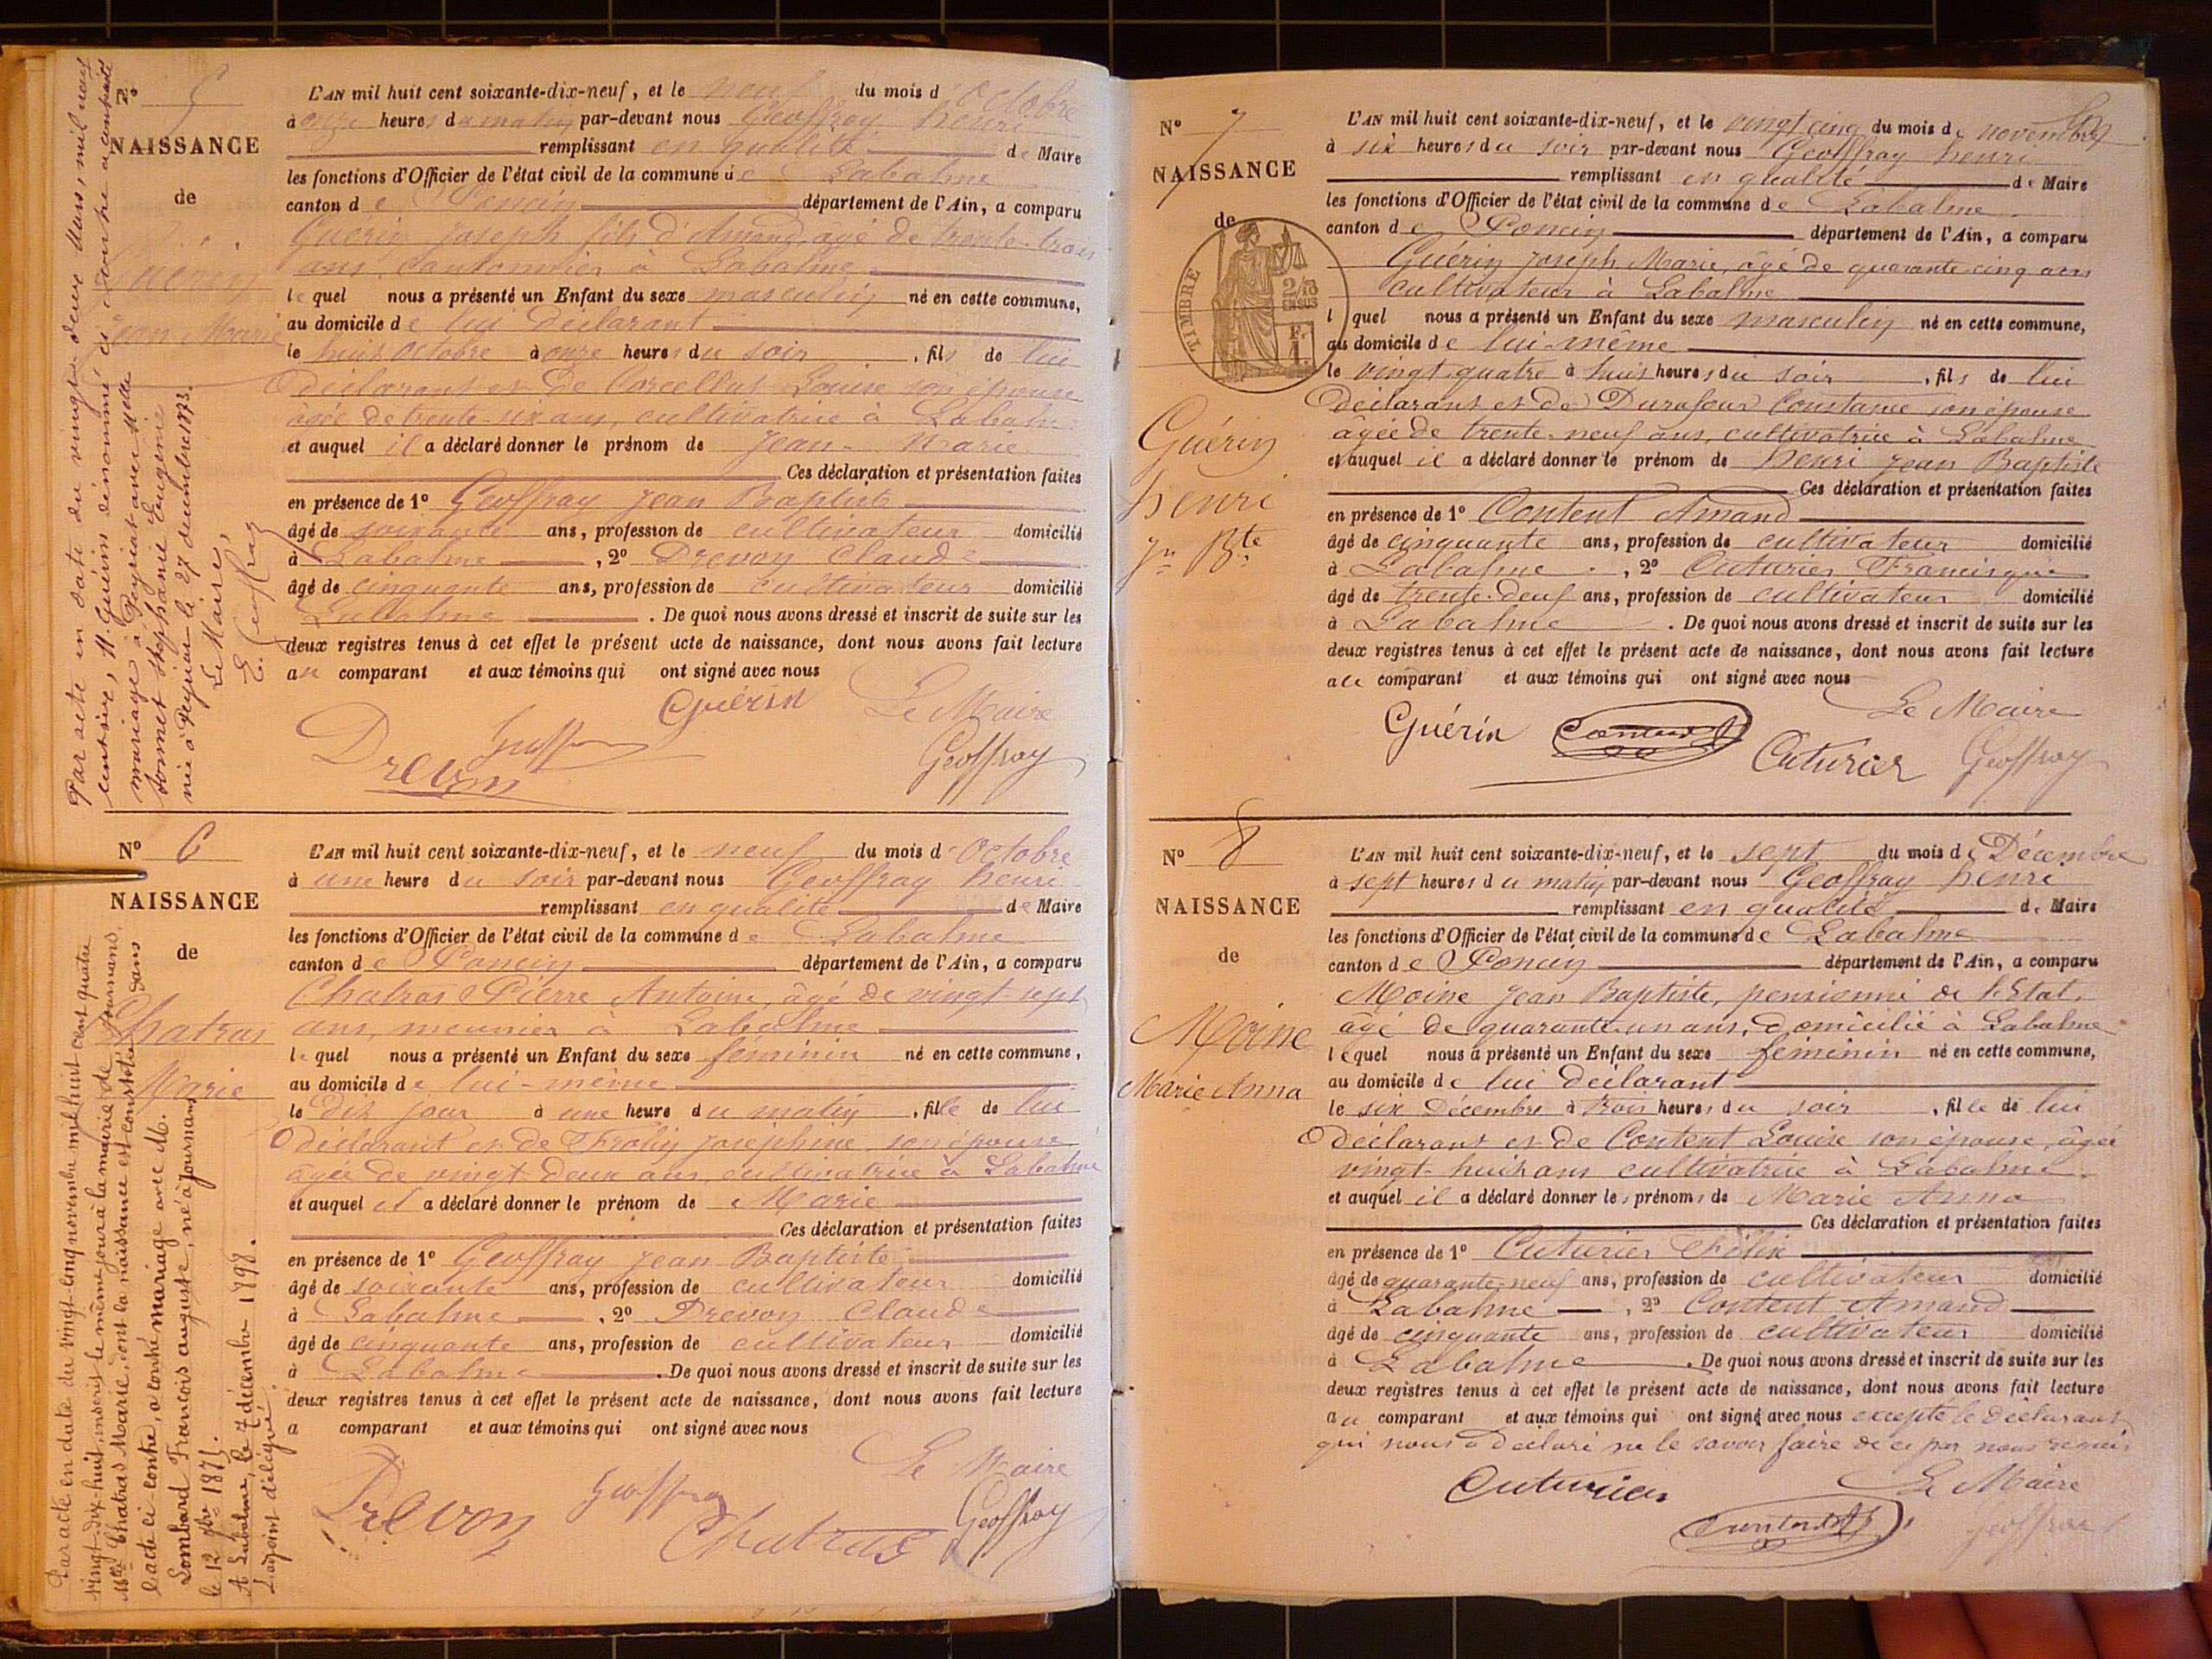 N° 5
NAISSANCE
de
Guérin
Jean Marie
L'AN mil huit cent soixante-dix-neuf, et le neuf du mois d'Octobre
à onze heures du matin par-devant nous Geoffray henri
remplissant en qualité de Maire
les fonctions d'Officier de l'état civil de la commune de Labalme
canton de Poncin département de l'Ain, a comparu
Guérin Joseph fils d'Amand, agé de trente-trois
ans, cantonnier à Labalme
lequel nous a présenté un Enfant du sexe masculin né en cette commune,
au domicile de lui déclarant
le huit octobre à onze heures du soir, fils de lui
déclarant et de Corcellut Louise son épouse
âgée de trente-six ans, cultivatrice à Labalme
et auquel il a déclaré donner le prénom de Jean-Marie
Ces déclaration et présentation faites
en présence de 1° Geoffray Jean Baptiste
âgé de soixante ans, profession de cultivateur domicilié
à Labalme, 2° Drevon Claude
âgé de cinquante ans, profession de cultivateur domicilié
Labalme. De quoi nous avons dressé et inscrit de suite sur les
deux registres tenus à cet effet le présent acte de naissance, dont nous avons fait lecture
au comparant et aux témoins qui ont signé avec nous
Guérin Le Maire
Drevon Geoffray Geoffray
Par acte en date du vingt-deux Mars mil neuf
cent six, M. Guérin dénommé ci-contre a contracté
mariage à Peyriat avec Melle
Bonnet Stéphanie Eugénie
née à Peyriat le 27 décembre 1873.
Le Maire,
E. Geoffray
N° 6
NAISSANCE
de
Chatras
Marie
L'AN mil huit cent soixante-dix-neuf, et le neuf du mois d'Octobre
à une heure du soir par-devant nous Geoffray henri
remplissant en qualité de Maire
les fonctions d'Officier de l'état civil de la commune de Labalme
canton de Poncin département de l'Ain, a comparu
Chatras Pierre Antoine, âgé de vingt-sept
ans, meunier à Labalme
lequel nous a présenté un Enfant du sexe féminin né en cette commune,
au domicile de lui-même
le dit jour à une heure du matin, fille de lui
déclarant et de Frohy Joséphine son épouse
âgée de vingt-deux ans, cultivatrice à Labalme
et auquel il a déclaré donner le prénom de Marie
Ces déclaration et présentation faites
en présence de 1° Geoffray Jean Baptiste
âgé de soixante ans, profession de cultivateur domicilié
à Labalme, 2° Drevon Claude
âgé de cinquante ans, profession de cultivateur domicilié
à Labalme. De quoi nous avons dressé et inscrit de suite sur les
deux registres tenus à cet effet le présent acte de naissance, dont nous avons fait lecture
a comparant et aux témoins qui ont signé avec nous
Le Maire
Drevon Geoffray Chatras Geoffray
Par acte en date du vingt-cinq novembre mil huit cent quatre
vingt-dix-huit, inscrit le même jour à la mairie de Journans,
Melle Chatras Marie, dont la naissance est constatée dans
l'acte ci-contre, a contracté mariage avec M.
Lombard François auguste, né à Journans
le 12 9bre 1871.
A Labalme, le 7 décembre 1898.
L'adjoint délégué.
N° 7
NAISSANCE
de
TIMBRE
2/10
EN SUS
Guérin
henri
Jn Bte
L'AN mil huit cent soixante-dix-neuf, et le vingt cinq du mois de novembre
à six heures du soir par-devant nous Geoffray henri
remplissant en qualité de Maire
les fonctions d'Officier de l'état civil de la commune de Labalme
canton de Poncin département de l'Ain, a comparu
Guérin Joseph Marie, âgé de quarante-cinq ans
cultivateur à Labalme
lquel nous a présenté un Enfant du sexe masculin né en cette commune,
au domicile de lui-même
le vingt-quatre à huit heures du soir, fils de lui
déclarant et de Durafour Constance son épouse
âgée de trente-neuf ans, cultivatrice à Labalme
et auquel il a déclaré donner le prénom de henri Jean Baptiste
Ces déclaration et présentation faites
en présence de 1° Content Amand
âgé de cinquante ans, profession de cultivateur domicilié
à Labalme, 2° Cuturier Francisque
âgé de trente-deux ans, profession de cultivateur domicilié
à Labalme. De quoi nous avons dressé et inscrit de suite sur les
deux registres tenus à cet effet le présent acte de naissance, dont nous avons fait lecture
au comparant et aux témoins qui ont signé avec nous
Le Maire
Guérin Content Cuturier Geoffray
N° 8
NAISSANCE
de
Moine
Marie Anna
L'AN mil huit cent soixante-dix-neuf, et le sept du mois de Décembre
à sept heures du matin par-devant nous Geoffray henri
remplissant en qualité de Maire
les fonctions d'Officier de l'état civil de la commune de Labalme
canton de Poncin département de l'Ain, a comparu
Moine Jean Baptiste, pensionné de l'Etat,
âgé de quarante-un ans, domicilié à Labalme
lequel nous a présenté un Enfant du sexe féminin né en cette commune,
au domicile de lui déclarant
le six Décembre à trois heures du soir, fille de lui
déclarant et de Content Louise son épouse, âgée
vingt-huit ans cultivatrice à Labalme
et auquel il a déclaré donner les prénoms de Marie Anna
Ces déclaration et présentation faites
en présence de 1° Cuturier Félix
âgé de quarante-neuf ans, profession de cultivateur domicilié
à Labalme, 2° Content Amand
âgé de cinquante ans, profession de cultivateur domicilié
à Labalme. De quoi nous avons dressé et inscrit de suite sur les
deux registres tenus à cet effet le présent acte de naissance, dont nous avons fait lecture
au comparant et aux témoins qui ont signé avec nous excepté le déclarant
qui nous a déclaré ne le savoir faire de ce par nous requis
Cuturier Le Maire
Content Geoffray